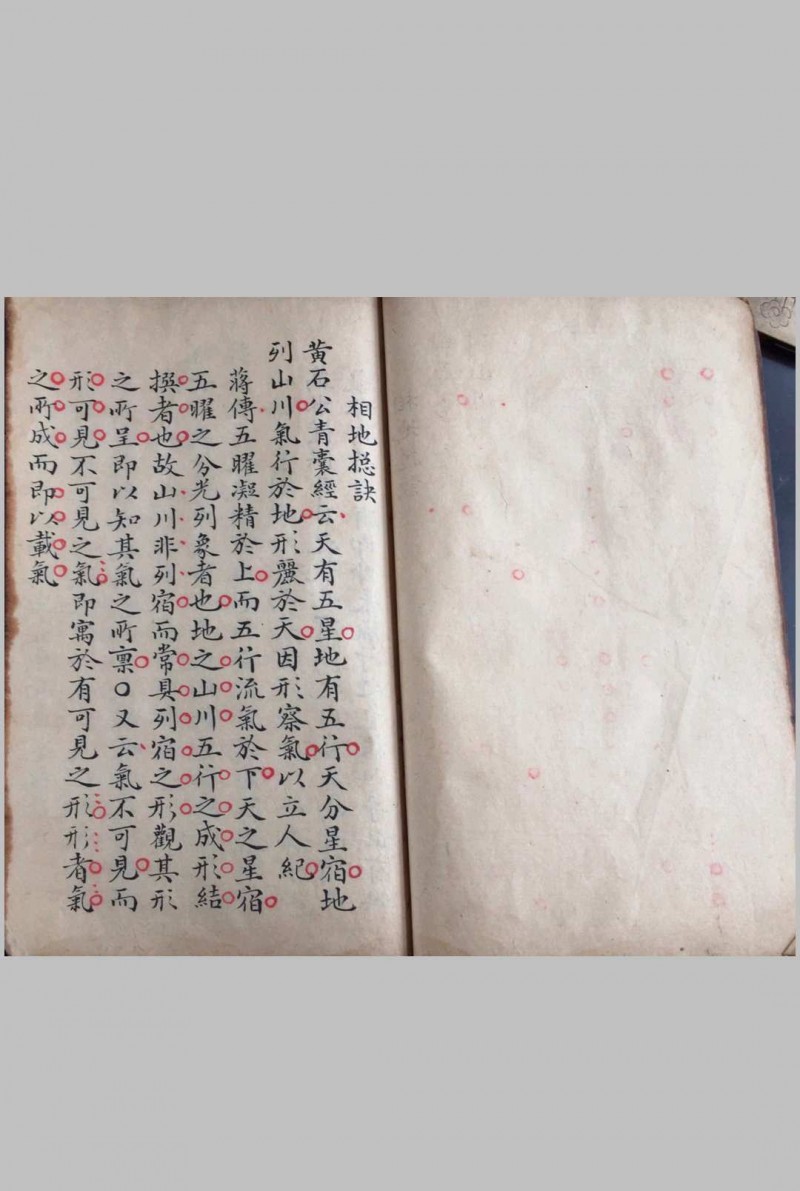 相地捴訣
黄石公青囊經云天有五星地有五行天分星宿地
列山川氣行於地形麗於天因形察氣以立人紀
蔣傳五曜凝精於上而五行流氣於下天之星宿
五曜之分光列象者也地之山川五行之成形結
撰者也故山川非列宿而常具列宿之形觀其形
之所呈即以知其氣之所禀〇又云氣不可見而
形可見不可見之氣即寓於有可見之形形者氣
之所成而即以載氣